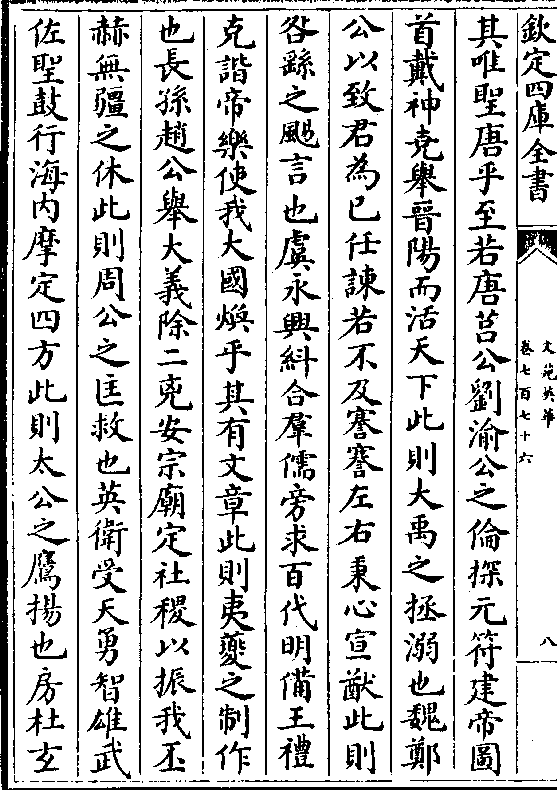 欽定四庫全書
文苑英華
卷七百七十六
八
其唯聖唐乎至若唐莒公劉渝公之倫探元符建帝圖
首戴神堯舉晉陽而活天下此則大禹之拯溺也魏鄭
公以致君為已任諫若不及謇謇左右秉心宣猷此則
咎繇之颺言也虞永興糾合羣儒旁求百代明備王禮
克諧帝樂使我大國煥乎其有文章此則夷夔之制作
也長孫趙公舉大義除二兇安宗廟定社稷以振我丕
赫無疆之休此則周公之匡救也英衛受天勇智雄武
佐聖鼓行海内摩定四方此則太公之鷹揚也房杜玄